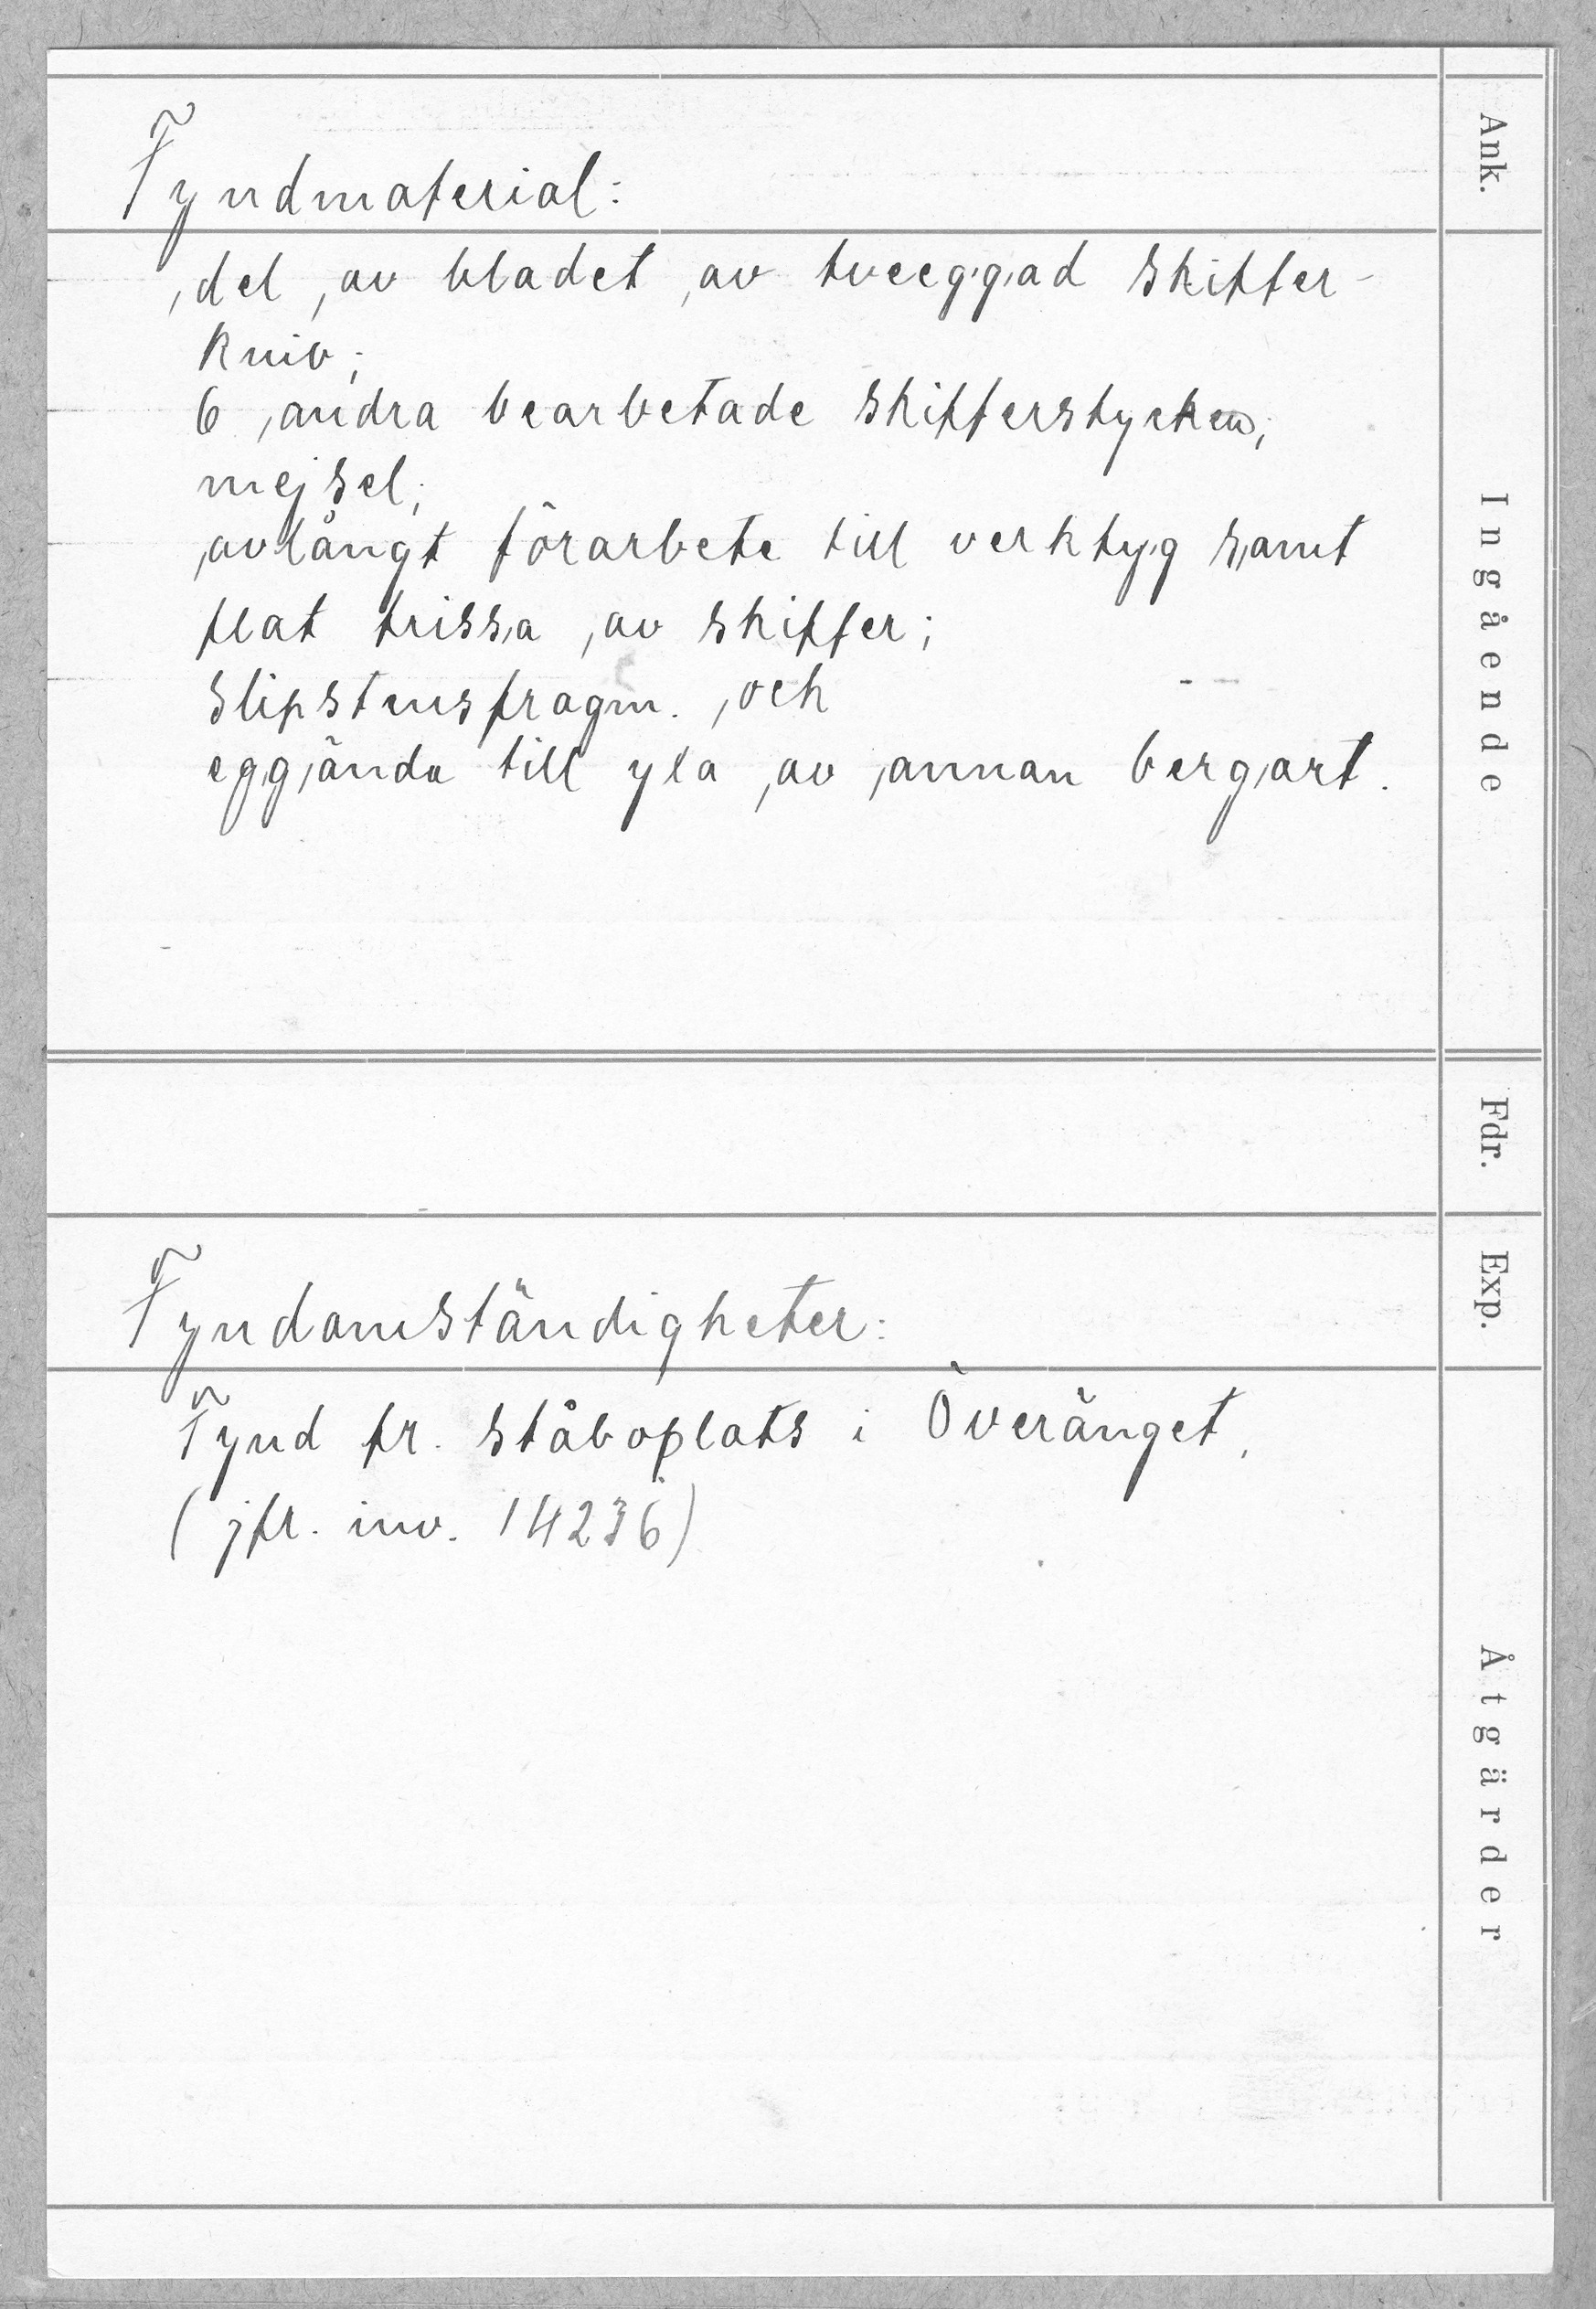 Ank.
Fyndmaterial:
del av bladet av tveeggad skiffer-
kniv;
6 andra bearbetade skifferstycken;
mejsel;
avlångt förarbete till verktyg samt
flat trissa av skiffer;
slipstensfragm. och
eggända till yxa av annan bergart.
Ingående
Fdr.
Exp.
Fyndomständigheter:
Fynd fr. ståboplats i Överänget.
(jfr. inv. 14236)
Åtgärder